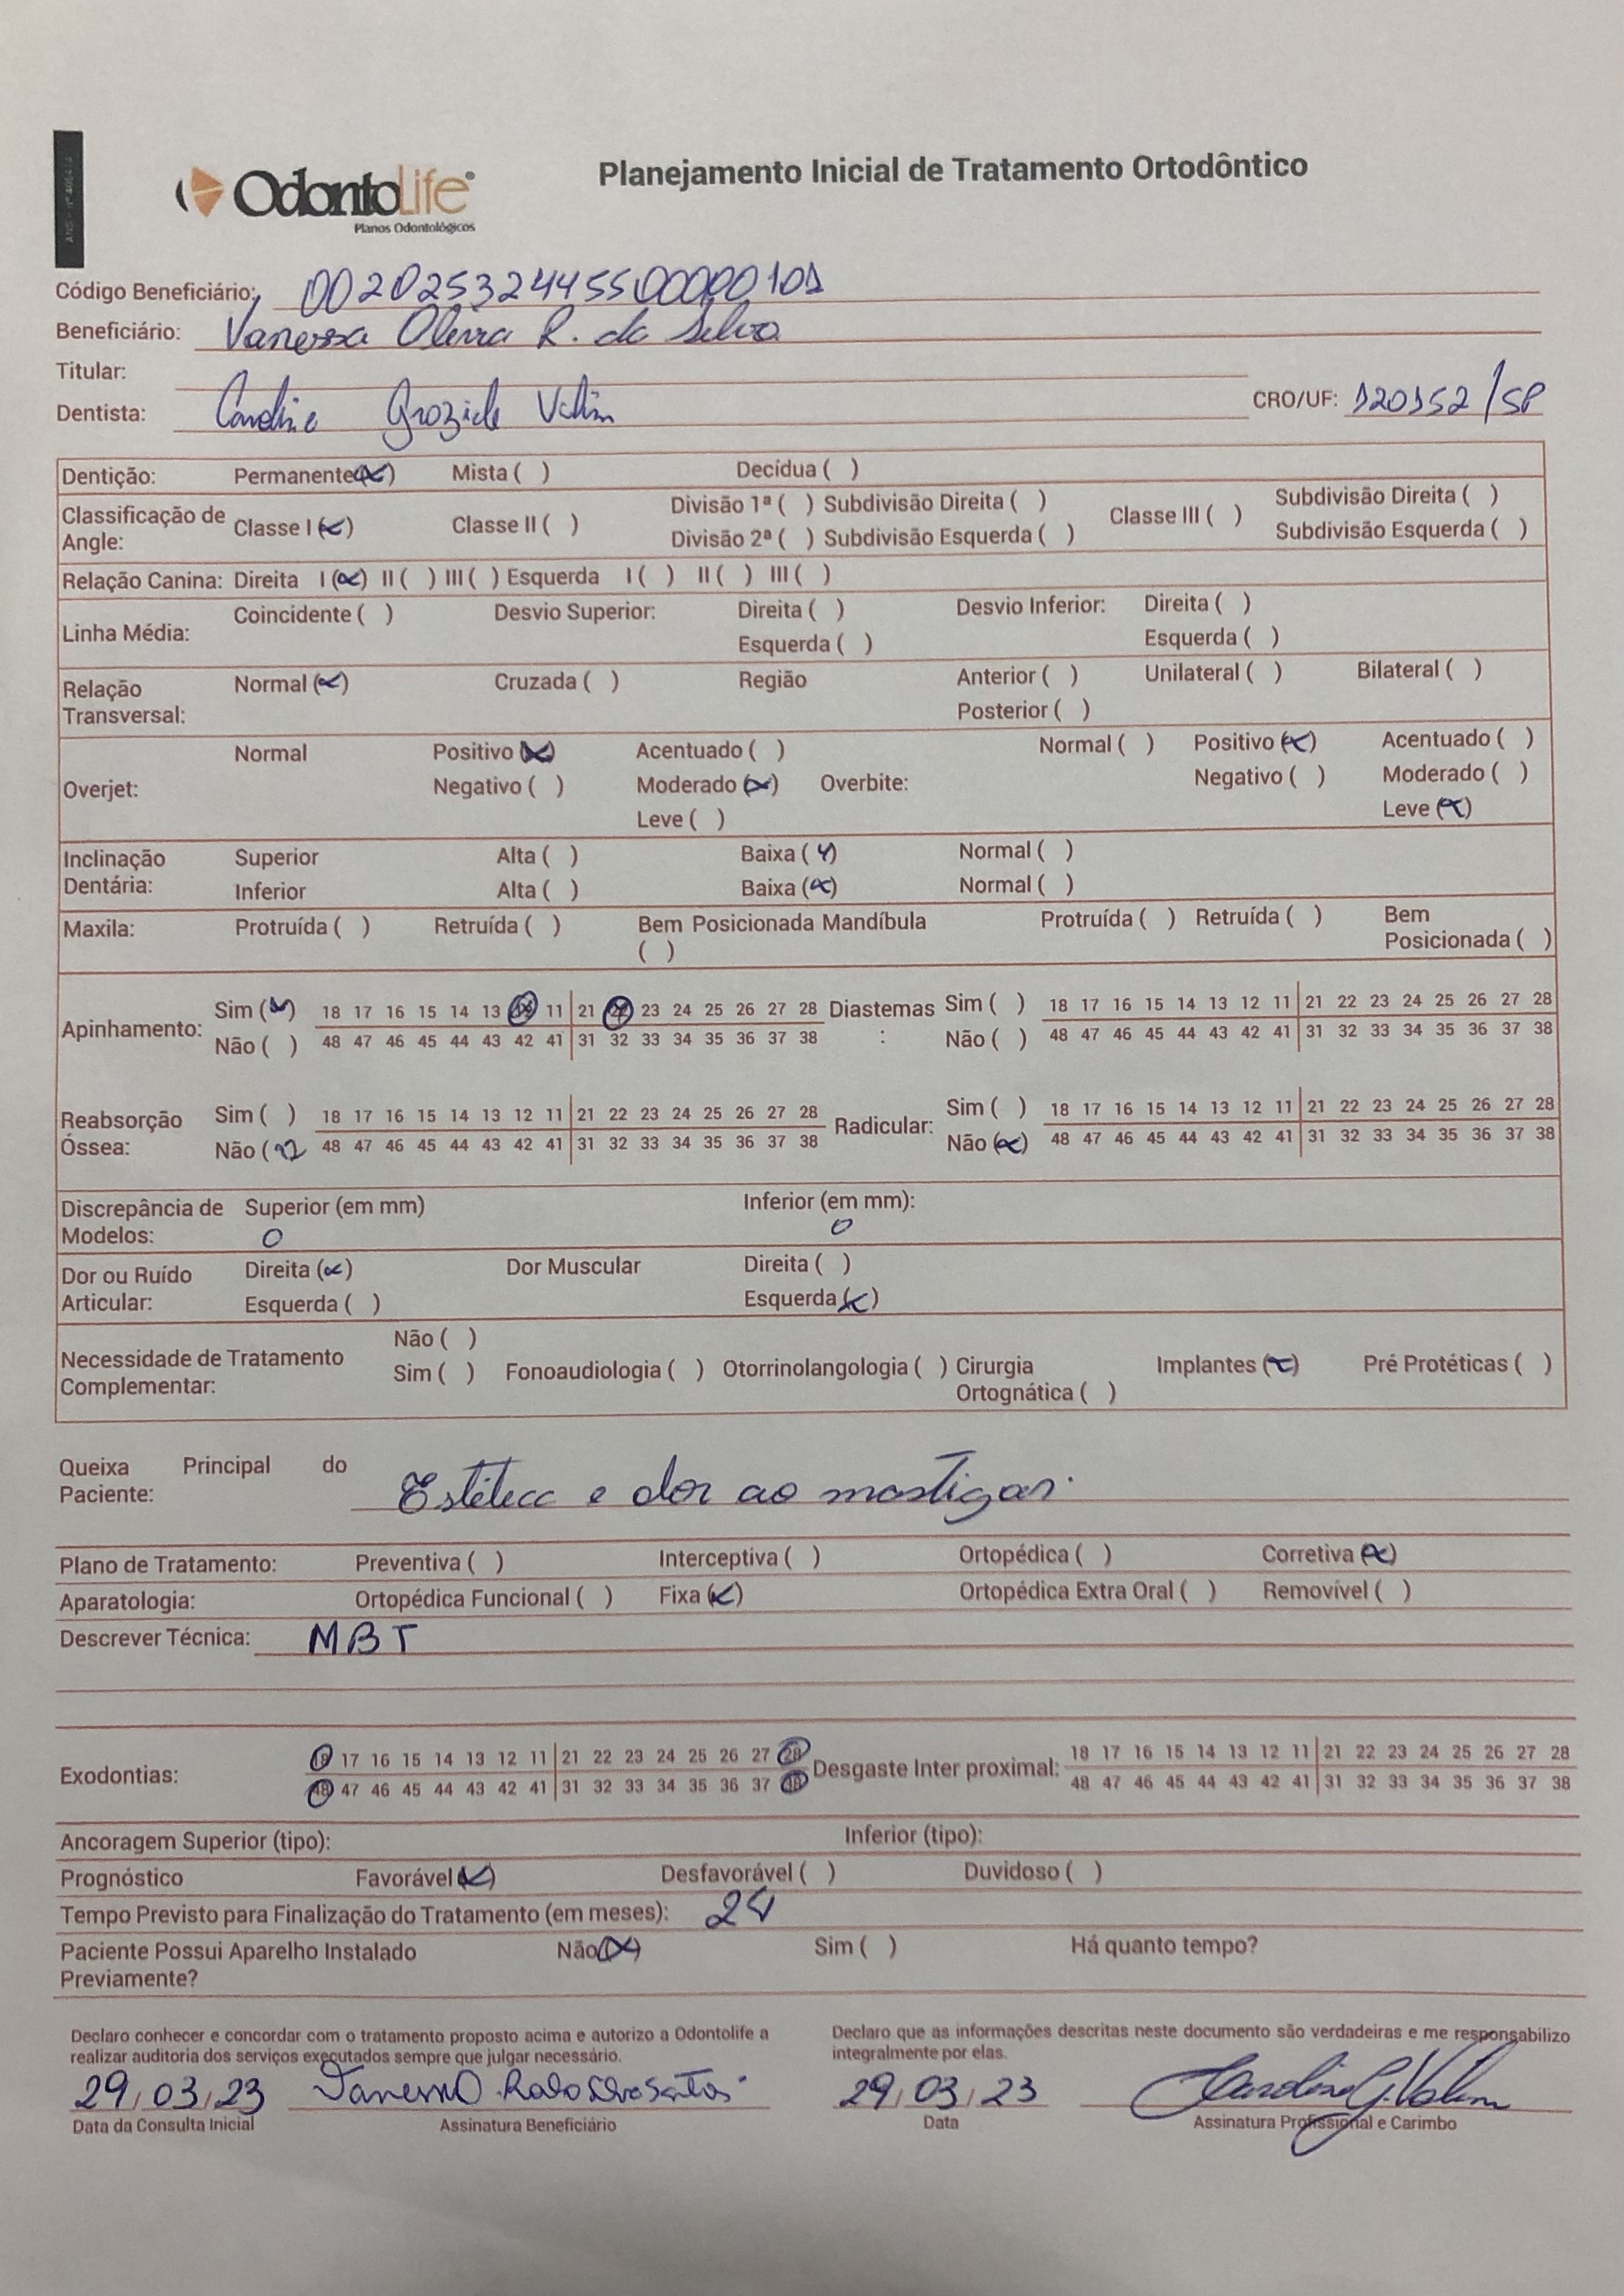 OdontoLife
Planos Odontológicos
Planejamento Inicial de Tratamento Ortodôntico
Código Beneficiário: 00202532445500000101
Beneficiário: Vanessa Oliveira R. da Silva
Titular:
Dentista: Caroline Graziele Valim CRO/UF: 120152/SP
Dentição: Permanente (x) Mista ( ) Decídua ( )
Classificação de Angle: Classe I (x) Classe II ( ) Divisão 1ª ( ) Subdivisão Direita ( ) Classe III ( ) Subdivisão Direita ( )
Divisão 2ª ( ) Subdivisão Esquerda ( ) Subdivisão Esquerda ( )
Relação Canina: Direita I (x) II ( ) III ( ) Esquerda I ( ) II ( ) III ( )
Linha Média: Coincidente ( ) Desvio Superior: Direita ( ) Desvio Inferior: Direita ( )
Esquerda ( ) Esquerda ( )
Relação Transversal: Normal (x) Cruzada ( ) Região Anterior ( ) Unilateral ( ) Bilateral ( )
Posterior ( )
Overjet: Normal Positivo (x) Acentuado ( ) Overbite: Normal ( ) Positivo (x) Acentuado ( )
Negativo ( ) Moderado (x) Negativo ( ) Moderado ( )
Leve ( ) Leve (x)
Inclinação Dentária: Superior Alta ( ) Baixa (x) Normal ( )
Inferior Alta ( ) Baixa (x) Normal ( )
Maxila: Protruída ( ) Retruída ( ) Bem Posicionada ( ) Mandíbula Protruída ( ) Retruída ( ) Bem Posicionada ( )
Apinhamento: Sim (x) 18 17 16 15 14 13 12 11 21 22 23 24 25 26 27 28 Diastemas: Sim ( ) 18 17 16 15 14 13 12 11 21 22 23 24 25 26 27 28
Não ( ) 48 47 46 45 44 43 42 41 31 32 33 34 35 36 37 38 Não ( ) 48 47 46 45 44 43 42 41 31 32 33 34 35 36 37 38
Reabsorção Óssea: Sim ( ) 18 17 16 15 14 13 12 11 21 22 23 24 25 26 27 28 Radicular: Sim ( ) 18 17 16 15 14 13 12 11 21 22 23 24 25 26 27 28
Não (x) 48 47 46 45 44 43 42 41 31 32 33 34 35 36 37 38 Não (x) 48 47 46 45 44 43 42 41 31 32 33 34 35 36 37 38
Discrepância de Modelos: Superior (em mm) 0 Inferior (em mm): 0
Dor ou Ruído Articular: Direita (x) Dor Muscular Direita ( )
Esquerda ( ) Esquerda (x)
Necessidade de Tratamento Complementar: Não ( )
Sim ( ) Fonoaudiologia ( ) Otorrinolangologia ( ) Cirurgia Ortognática ( ) Implantes (x) Pré Protéticas ( )
Queixa Principal do Paciente: Estética e dor ao mastigar.
Plano de Tratamento: Preventiva ( ) Interceptiva ( ) Ortopédica ( ) Corretiva (x)
Aparatologia: Ortopédica Funcional ( ) Fixa (x) Ortopédica Extra Oral ( ) Removível ( )
Descrever Técnica: MBT
Exodontias: 18 17 16 15 14 13 12 11 21 22 23 24 25 26 27 28 Desgaste Inter proximal: 18 17 16 15 14 13 12 11 21 22 23 24 25 26 27 28
48 47 46 45 44 43 42 41 31 32 33 34 35 36 37 38 48 47 46 45 44 43 42 41 31 32 33 34 35 36 37 38
Ancoragem Superior (tipo): Inferior (tipo):
Prognóstico Favorável (x) Desfavorável ( ) Duvidoso ( )
Tempo Previsto para Finalização do Tratamento (em meses): 24
Paciente Possui Aparelho Instalado Previamente? Não (x) Sim ( ) Há quanto tempo?
Declaro conhecer e concordar com o tratamento proposto acima e autorizo a Odontolife a
realizar auditoria dos serviços executados sempre que julgar necessário.
Declaro que as informações descritas neste documento são verdadeiras e me responsabilizo
integralmente por elas.
29/03/23 29/03/23 Caroline G. Valim
Data da Consulta Inicial Assinatura Beneficiário Data Assinatura Profissional e Carimbo